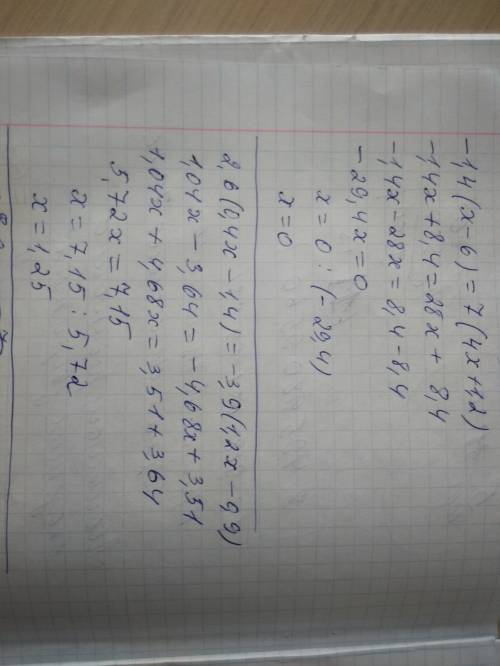 -1,4(x-6)=7(4x+1,2)
-1,4x+8,4=28x+8,4
-1,4x-28x=8,4-8,4
-29,4x=0
x=0:(-29,4)
x=0
2,6(0,4x-1,4)=-3,9(1,2x-0,9)
1,04x-3,64=-4,68x+3,51
1,04x+4,68x=3,51+3,64
5,72x=7,15
x=7,15:5,72
x=1,25